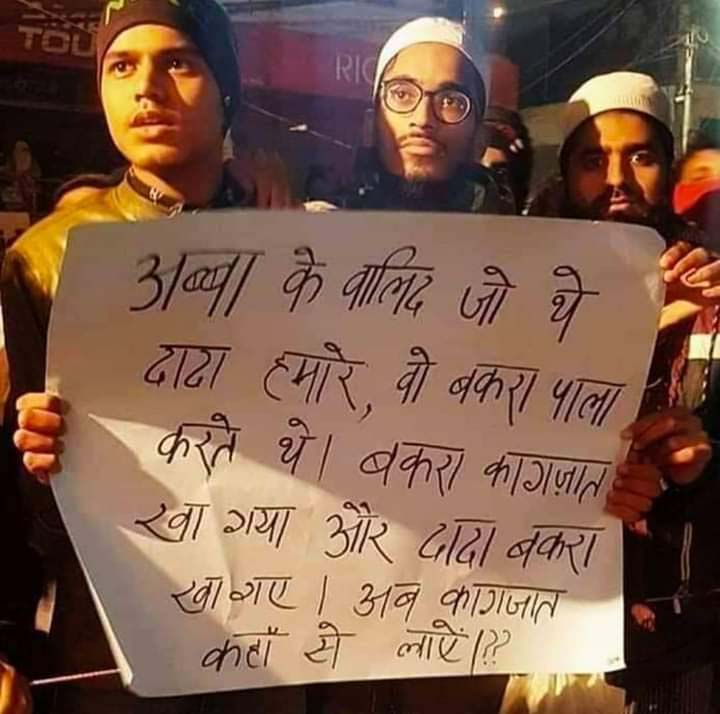 TOU
RIC
अब्बा के वालिद जो थे
दादा हमारे, वो बकरा पाला
करते थे। बकरा कागज़ात
खा गया और दादा बकरा
खा गए। अब कागजात
कहाँ से लाऐं।??